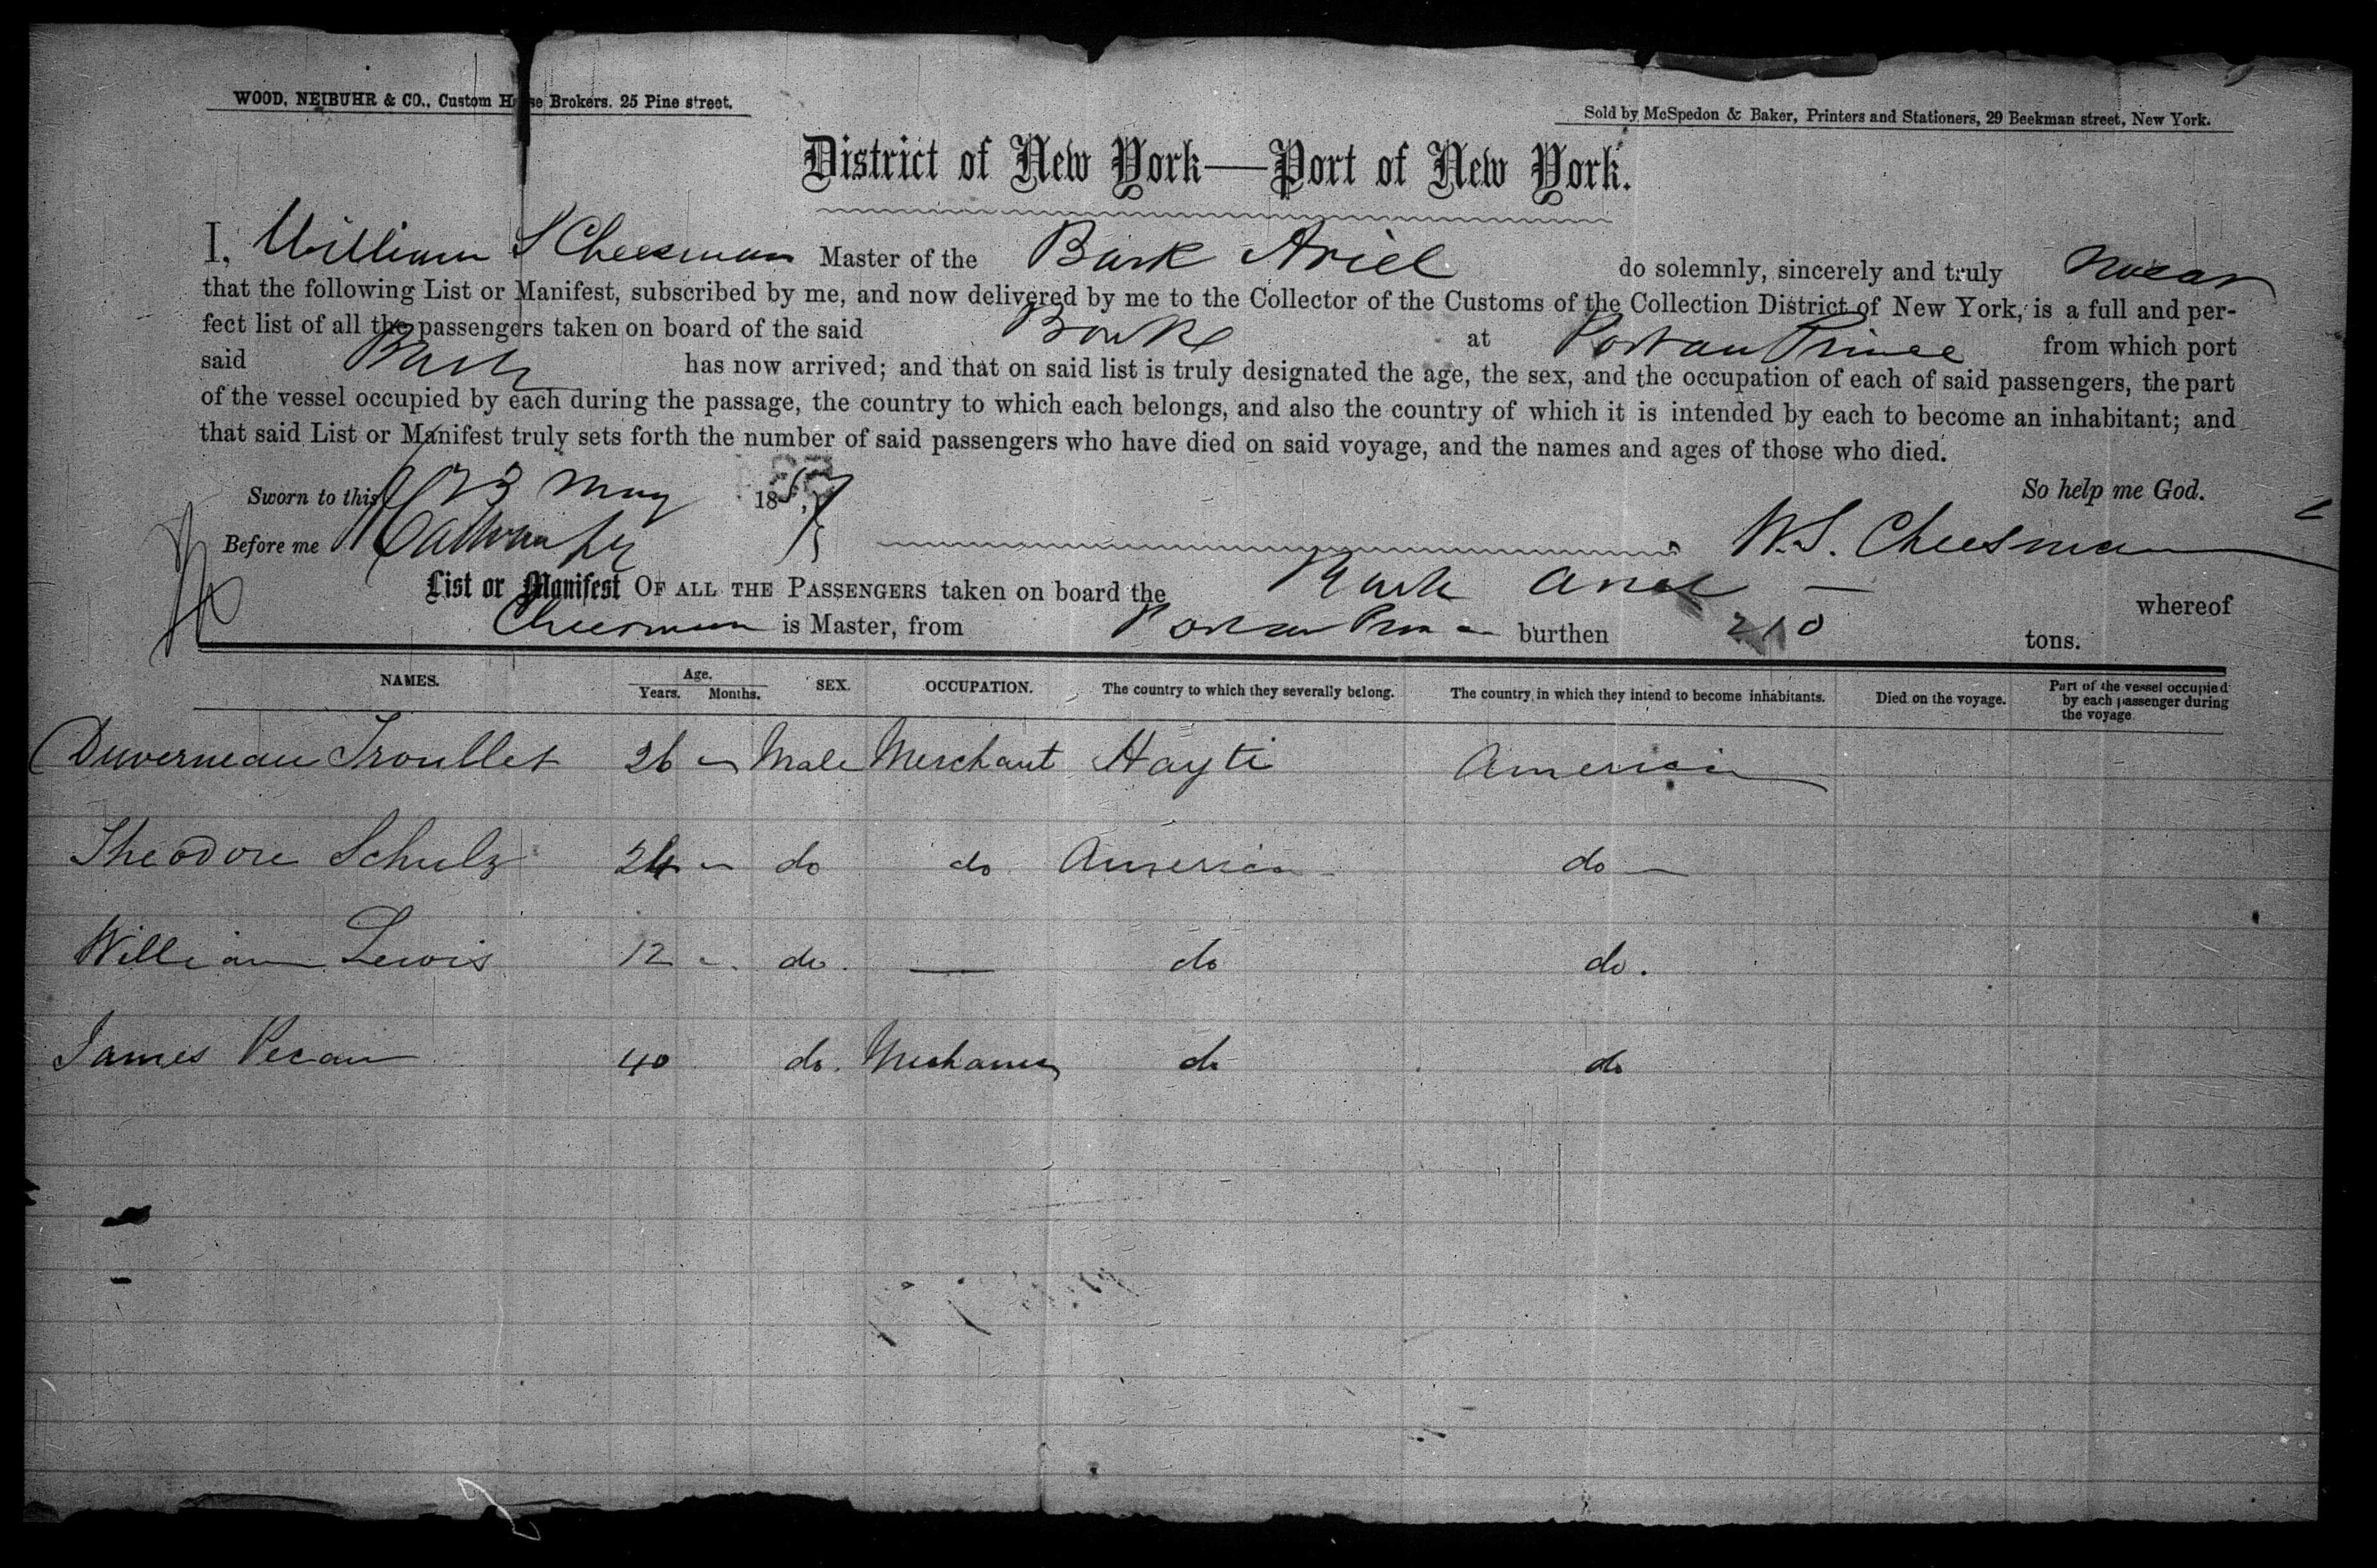 WOOD, NEIBUHR & CO., Custom House Brokers. 25 Pine street.
Sold by McSpedon & Baker, Printers and Stationers, 29 Beekman street, New York.
District of New York—Port of New York.
I, William S Cheesman Master of the Bark Ariel do solemnly, sincerely and truly swear
that the following List or Manifest, subscribed by me, and now delivered by me to the Collector of the Customs of the Collection District of New York, is a full and per-
fect list of all the passengers taken on board of the said Bark at Port au Prince from which port
said Bark has now arrived; and that on said list is truly designated the age, the sex, and the occupation of each of said passengers, the part
of the vessel occupied by each during the passage, the country to which each belongs, and also the country of which it is intended by each to become an inhabitant; and
that said List or Manifest truly sets forth the number of said passengers who have died on said voyage, and the names and ages of those who died.
Sworn to this 23 May 1857 So help me God.
Before me W. S. Cheesman
List or Manifest OF ALL THE PASSENGERS taken on board the Bark Ariel — whereof
Cheesman is Master, from Port au Prince burthen 210 tons.
NAMES. Age. Years. Months. SEX. OCCUPATION. The country to which they severally belong. The country in which they intend to become inhabitants. Died on the voyage. Part of the vessel occupied by each passenger during the voyage
Duverneau Troullet 26 - Male Merchant Hayti America
Theodore Schulz 24 - do do America do —
William Lewis 12 - do. — do do.
James Vecan 40 do. Mechanic do do